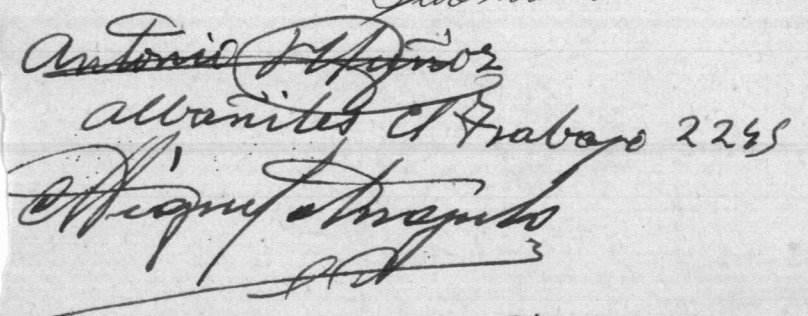 Antonio Muñoz
Albañiles el Trabajo 2245
Miguel